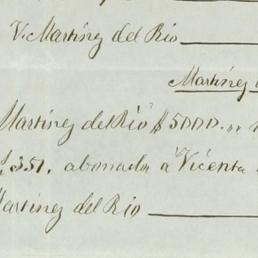 V. Martínez del Río
Martínez
Martínez del Río $5000.00
351, abonados a Vicenta
Martínez del Río